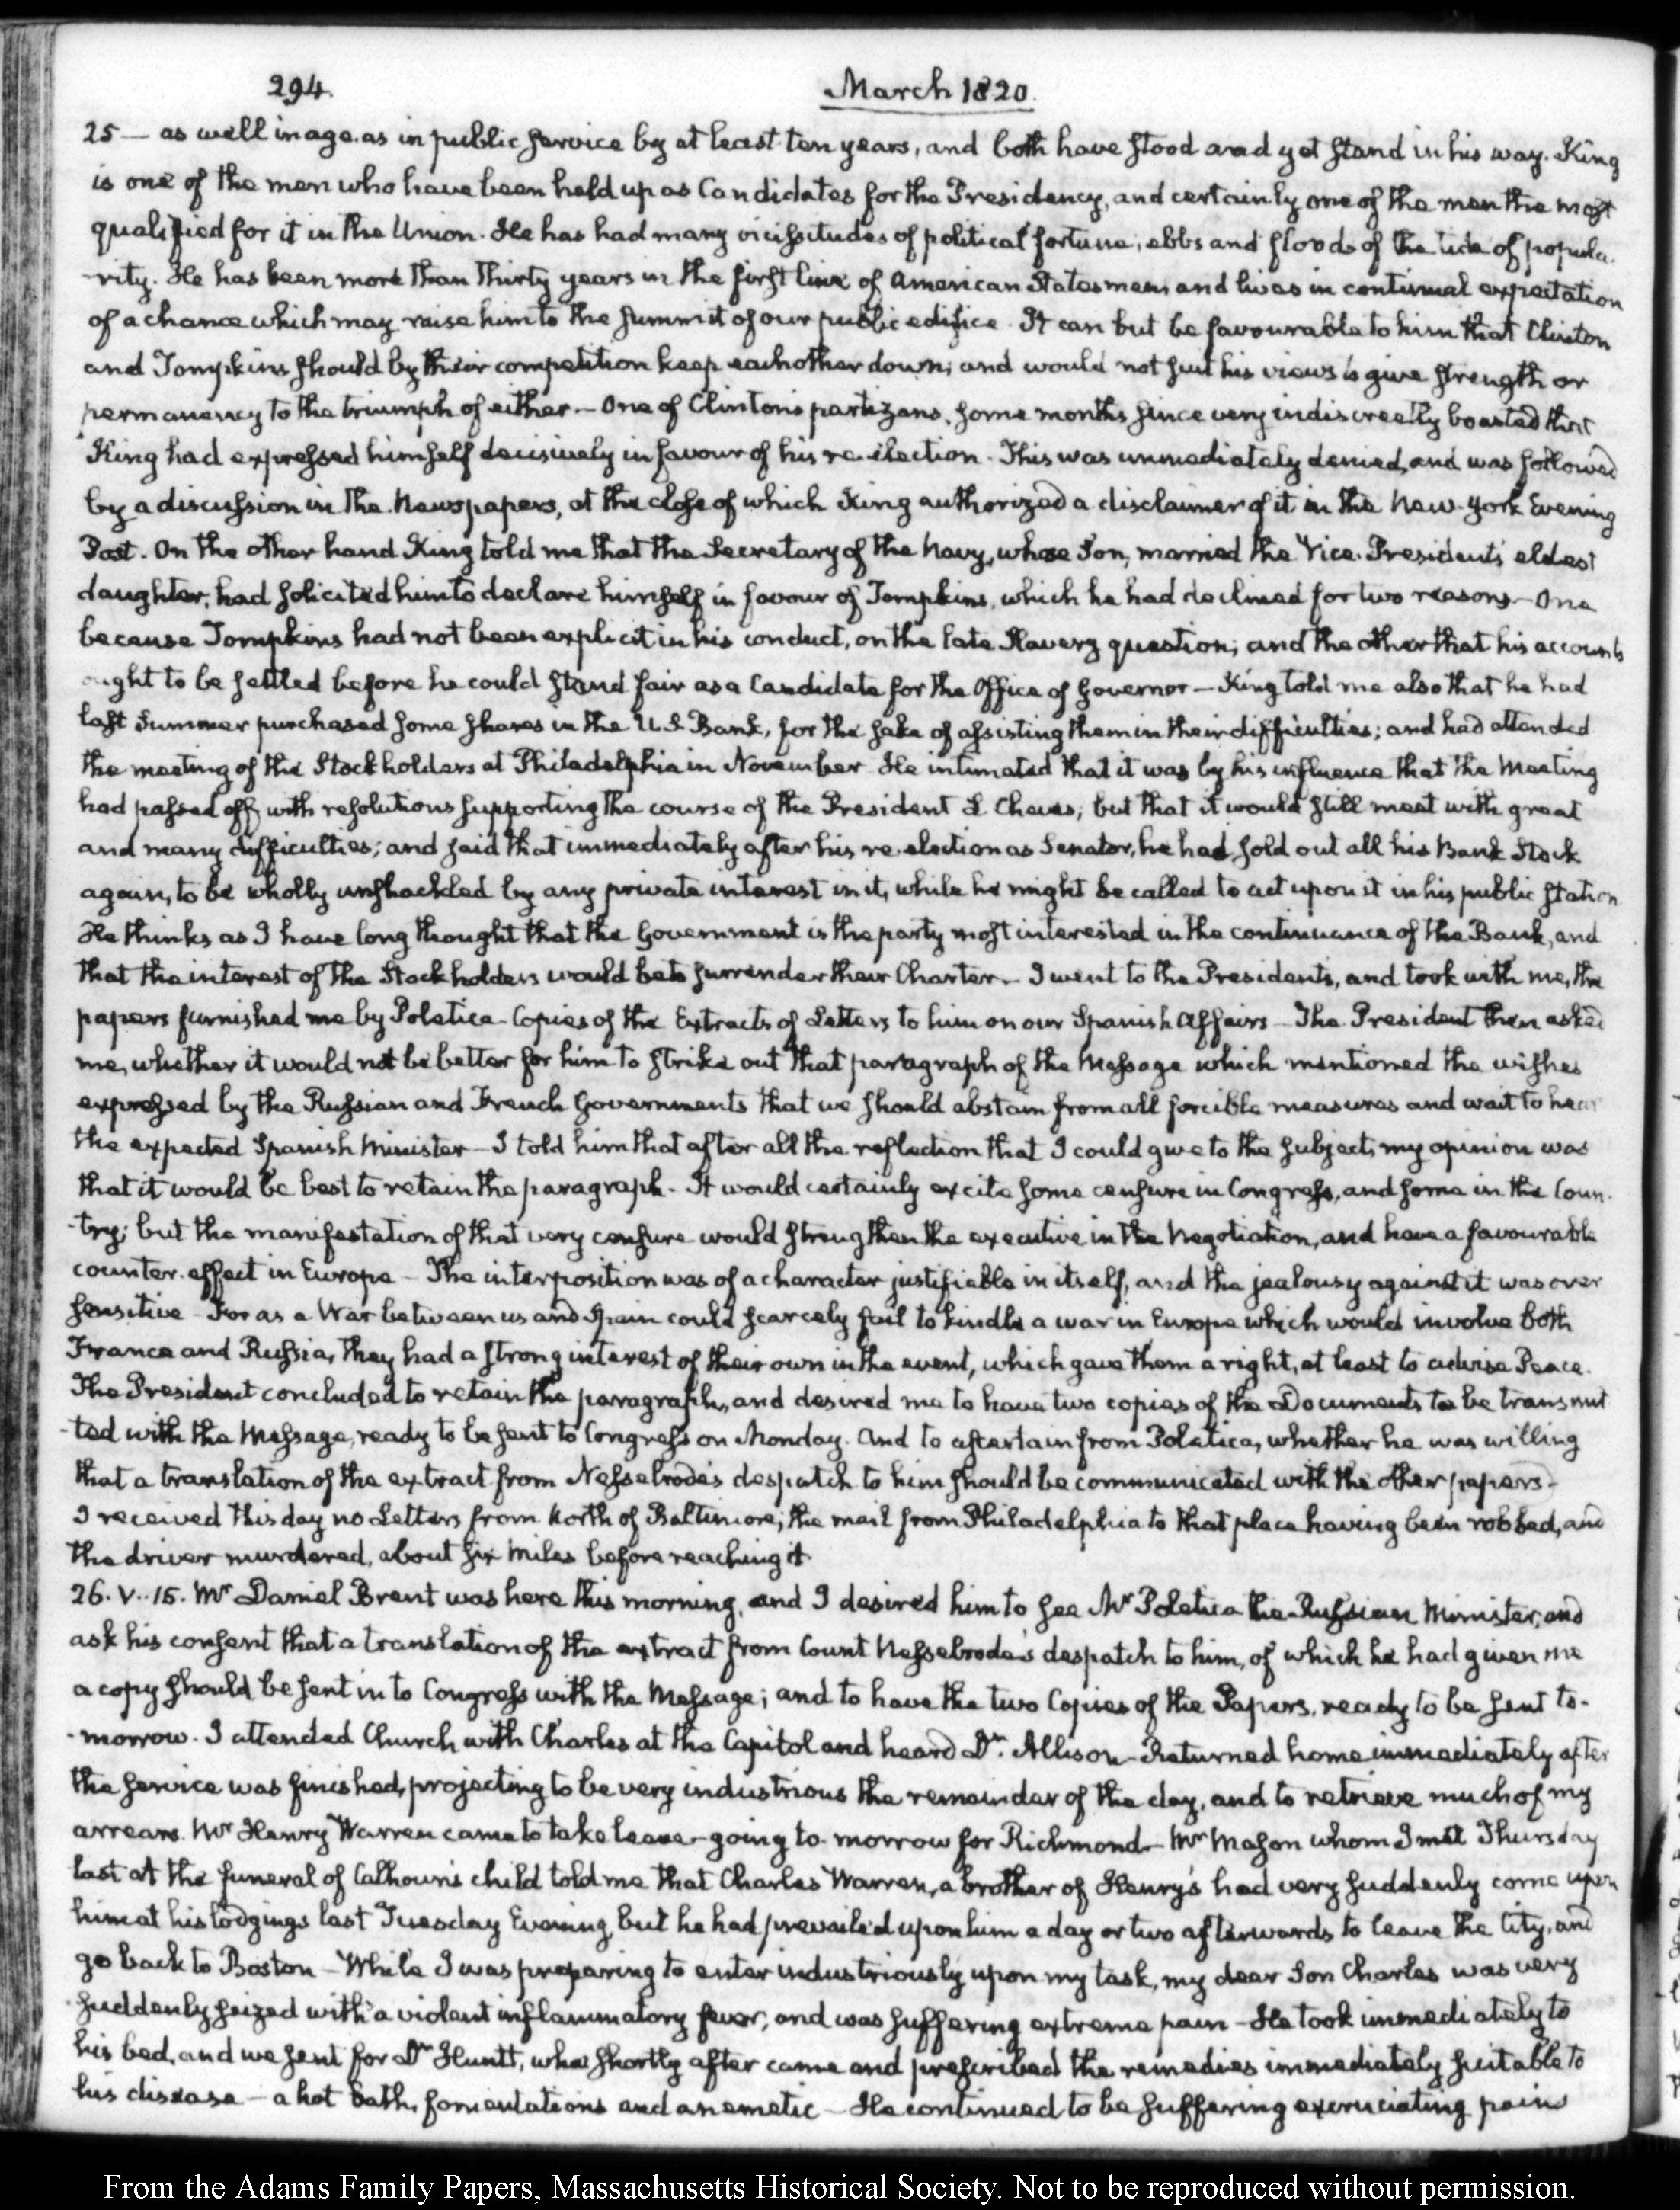 294.
March 1820.
25 — as well in age as in public service by at least ten years, and both have stood and yet stand in his way. King
is one of the men who have been held up as Candidates for the Presidency, and certainly one of the men the most
qualified for it in the Union. He has had many vicissitudes of political fortune; ebbs and floods of the tide of popula-
-rity. He has been more than thirty years in the first line of American Statesmen and lives in continual expectation
of a chance which may raise him to the summit of our public edifice. It can but be favourable to him that Clinton
and Tompkins should by their competition keep each other down; and would not suit his views to give strength or
permanency to the triumph of either. — One of Clinton's partizans, some months since very indiscreetly boasted that
King had expressed himself decisively in favour of his re-election. This was immediately denied, and was followed
by a discussion in the Newspapers, at the close of which King authorized a disclaimer of it in the New-York Evening
Post. On the other hand King told me that the Secretary of the Navy, whose Son, married the Vice-President's eldest
daughter, had solicited him to declare himself in favour of Tompkins, which he had declined for two reasons — One
because Tompkins had not been explicit in his conduct, on the late Slavery question; and the other that his accounts
ought to be settled before he could stand fair as a Candidate for the Office of Governor — King told me also that he had
last Summer purchased some shares in the U.S. Bank, for the sake of assisting them in their difficulties; and had attended
the meeting of the Stockholders at Philadelphia in November. He intimated that it was by his influence that the Meeting
had passed off with resolutions supporting the course of the President L. Cheves; but that it would still meet with great
and many difficulties; and said that immediately after his re-election as Senator, he had sold out all his Bank Stock
again, to be wholly unshackled by any private interest in it, while he might be called to act upon it in his public station
He thinks as I have long thought that the Government is the party most interested in the continuance of the Bank, and
that the interest of the Stockholders would be to surrender their Charter. — I went to the President's, and took with me, the
papers furnished me by Poletica — Copies of the Extracts of Letters to him on our Spanish Affairs — The President then asked
me, whether it would not be better for him to strike out that paragraph of the Message which mentioned the wishes
expressed by the Russian and French Governments that we should abstain from all forcible measures and wait to hear
the expected Spanish Minister — I told him that after all the reflection that I could give to the subject, my opinion was
that it would be best to retain the paragraph. — It would certainly excite some censure in Congress, and some in the Coun-
-try; but the manifestation of that very censure would strengthen the executive in the Negotiation, and have a favourable
counter-effect in Europe — The interposition was of a character justifiable in itself, and the jealousy against it was over
sensitive — For as a War between us and Spain could scarcely fail to kindle a war in Europe which would involve both
France and Russia, they had a strong interest of their own in the event, which gave them a right, at least to advise Peace.
The President concluded to retain the paragraph, and desired me to have two copies of the Documents to be transmit
-ted with the Message, ready to be sent to Congress on Monday. And to ascertain from Poletica, whether he was willing
that a translation of the extract from Nesselrode's despatch to him should be communicated with the other papers —
I received this day no Letters from North of Baltimore; the mail from Philadelphia to that place having been robbed, and
the driver murdered, about six Miles before reaching it.
26. V..15. Mr Daniel Brent was here this morning, and I desired him to see Mr Poletica the Russian Minister, and
ask his consent that a translation of the extract from Count Nesselrode's despatch to him, of which he had given me
a copy should be sent in to Congress with the Message; and to have the two Copies of the Papers, ready to be sent to-
-morrow. I attended Church with Charles at the Capitol and heard Dr. Allison — Returned home immediately after
the service was finished, projecting to be very industrious the remainder of the day, and to retrieve much of my
arrears. Mr Henry Warren came to take leave — going to-morrow for Richmond — Mr Mason whom I met Thursday
last at the funeral of Calhoun's child told me that Charles Warren, a brother of Henry's had very suddenly come upon
him at his lodgings last Tuesday Evening, but he had prevailed upon him a day or two afterwards to leave the City, and
go back to Boston — While I was preparing to enter industriously upon my task, my dear Son Charles was very
suddenly seized with a violent inflammatory fever, and was suffering extreme pain — He took immediately to
his bed, and we sent for Dr Huntt, who shortly after came and prescribed the remedies immediately suitable to
his disease — a hot bath, fomentations and an emetic — He continued to be suffering excruciating pain
From the Adams Family Papers, Massachusetts Historical Society. Not to be reproduced without permission.